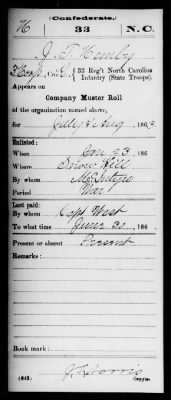 (Confederate.)
H 33 N.C.
J. T. Hemby
Co. 33 Reg't North Carolina
Infantry (State Troops).
Appears on
Company Muster Roll
of the organization named above,
for July & Aug, 1863.
Enlisted:
When Jan 23, 186
Where Snow Hill
By whom McIntyre
Period War
Last paid:
By whom Capt. West
To what time June 30, 186
Present or absent Present
Remarks:
Book mark:
(642)
Copyist.